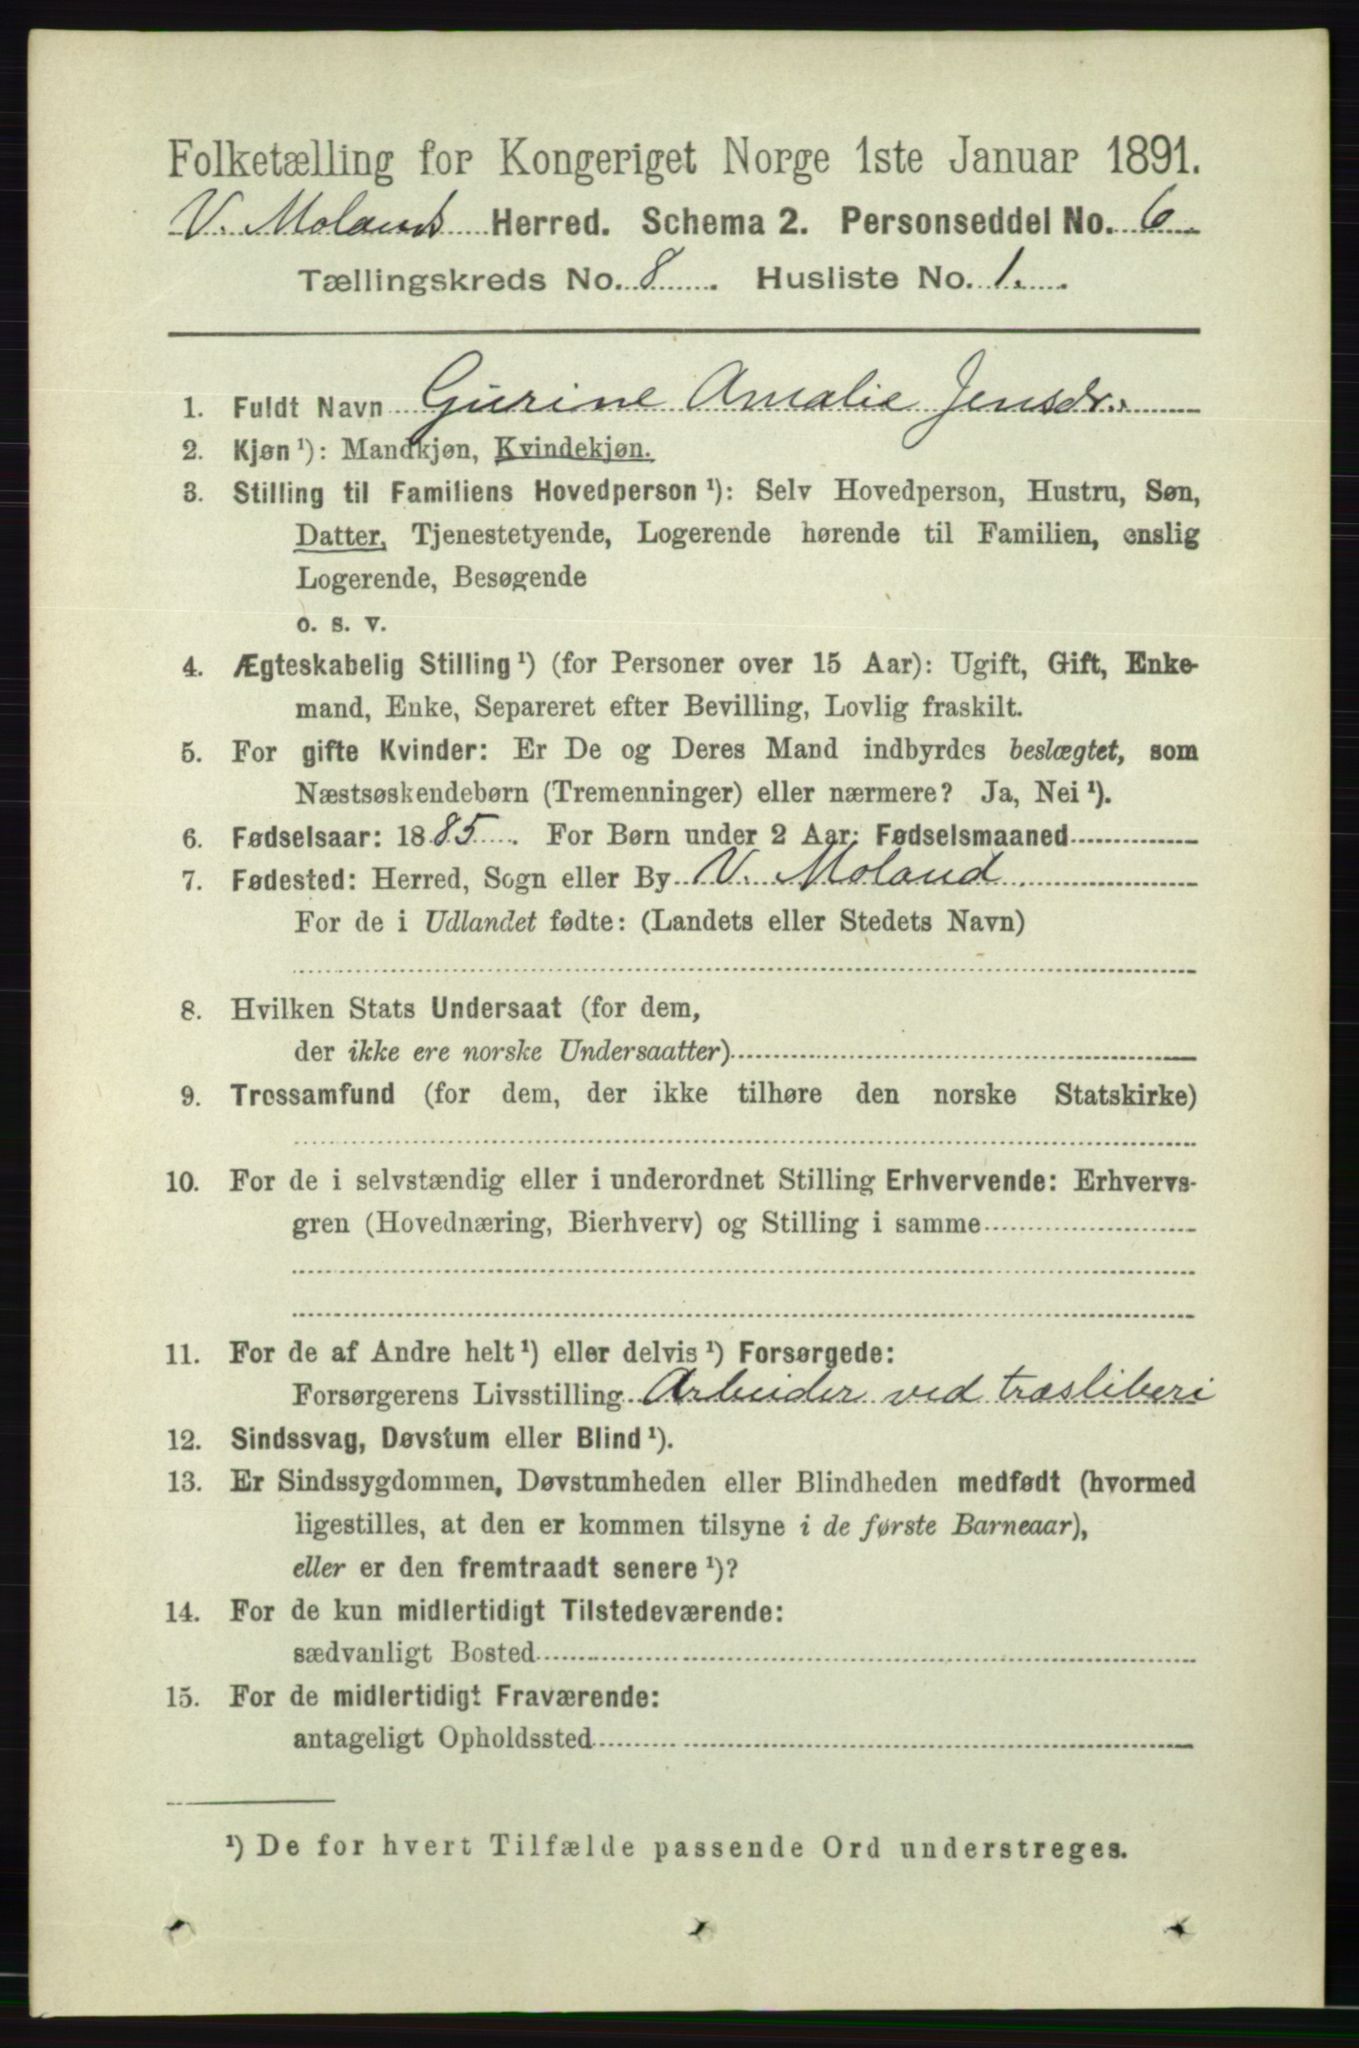 Folketælling for Kongeriget Norge 1ste Januar 1891.
V. Molands Herred. Schema 2. Personseddel No. 6
Tællingskreds No. 8 . Husliste No. 1.
1. Fuldt Navn Gurine Amalie Jensdr.
2. Kjøn ¹): Mandkjøn, Kvindekjøn.
3. Stilling til Familiens Hovedperson ¹): Selv Hovedperson, Hustru, Søn,
Datter, Tjenestetyende, Logerende hørende til Familien, enslig
Logerende, Besøgende
o. s. v.
4. Ægteskabelig Stilling ¹) (for Personer over 15 Aar): Ugift, Gift, Enke-
mand, Enke, Separeret efter Bevilling, Lovlig fraskilt.
5. For gifte Kvinder: Er De og Deres Mand indbyrdes beslægtet, som
Næstsøskendebørn (Tremenninger) eller nærmere? Ja, Nei ¹).
6. Fødselsaar: 1885. For Børn under 2 Aar: Fødselsmaaned
7. Fødested: Herred, Sogn eller By V. Moland
For de i Udlandet fødte: (Landets eller Stedets Navn)
8. Hvilken Stats Undersaat (for dem,
der ikke ere norske Undersaatter)
9. Trossamfund (for dem, der ikke tilhøre den norske Statskirke)
10. For de i selvstændig eller i underordnet Stilling Erhvervende: Erhvervs-
gren (Hovednæring, Bierhverv) og Stilling i samme
11. For de af Andre helt ¹) eller delvis ¹) Forsørgede:
Forsørgerens Livsstilling Arbeider ved træsliberi
12. Sindssvag, Døvstum eller Blind ¹).
13. Er Sindssygdommen, Døvstumheden eller Blindheden medfødt (hvormed
ligestilles, at den er kommen tilsyne i de første Barneaar),
eller er den fremtraadt senere ¹)?
14. For de kun midlertidigt Tilstedeværende:
sædvanligt Bosted
15. For de midlertidigt Fraværende:
antageligt Opholdssted
¹) De for hvert Tilfælde passende Ord understreges.